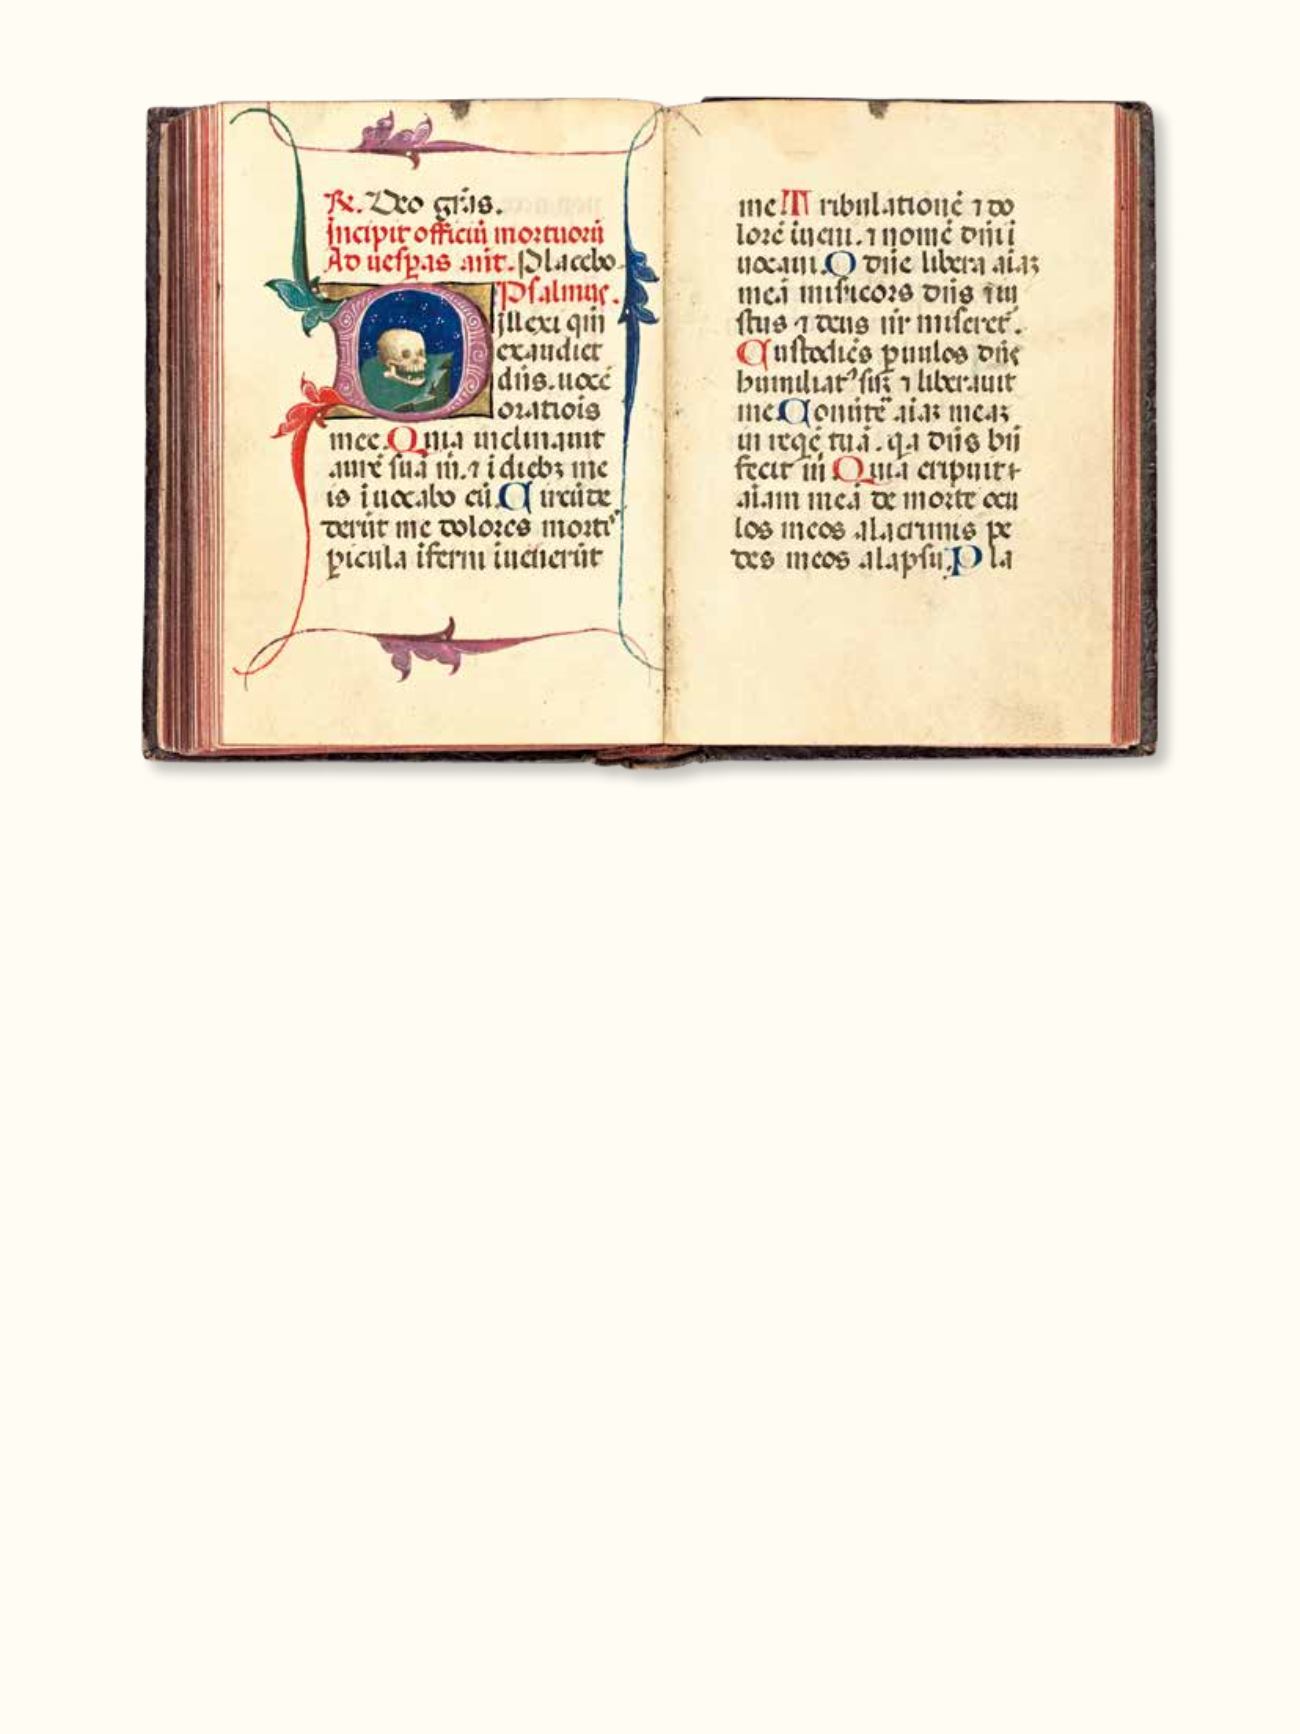 R. Deo grās.
Incipit officiū mortuorū
Ad uesp̱as añt. Placebo.
Psalmus.
Dilexi qm̄
exaudiet
dn̄s. uocē
orationis
mee. Quia inclinauit
aurē suā m̄. ⁊ ī dieb₃ me
is īuocabo cū. Circūde
derūt me dolores morti⁹
p̱icula īferni īuenerūt
me Tribulationē ⁊ do
lorē īueni. ⁊ nomē dn̄i ī
uocaui. O dn̄e libera aīa₃
meā misicors dn̄s ⁊ iu
stus ⁊ deus nr̄ miseret̄.
Custodiēs p̱uulos dn̄s
humiliat⁹ sū₃ ⁊ liberauit
me Conūte aīa₃ mea₃
in reqē tuā. q.a dn̄s bn̄
fecit m̄ Quia eripuit
aīam meā de morte ocu
los meos a lacrimis pe
des meos a lapsu. Pla